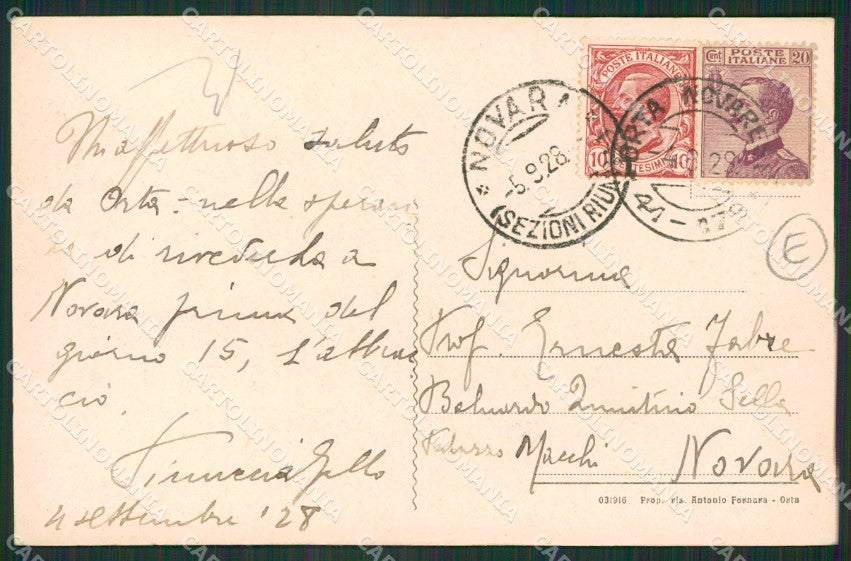 Un affettuoso saluto
da Orta - nella speran
za di rivederla a
Novara prima del
giorno 15, L'abbrac
cio.
Gallo
4 settembre '28
POSTE ITALIANE
10 CENTESIMI 10
Cent. POSTE 20
ITALIANE
* NOVARA
-5.9.28
(SEZIONI RIUN
ORTA NOVARE
E
Signorina
Prof. Ernesta Fabre
Baluardo Quintino Sella
Palazzo Macchi Novara
031916 Prop. ris. Antonio Fornara - Orta
CARTOLINOMANIA